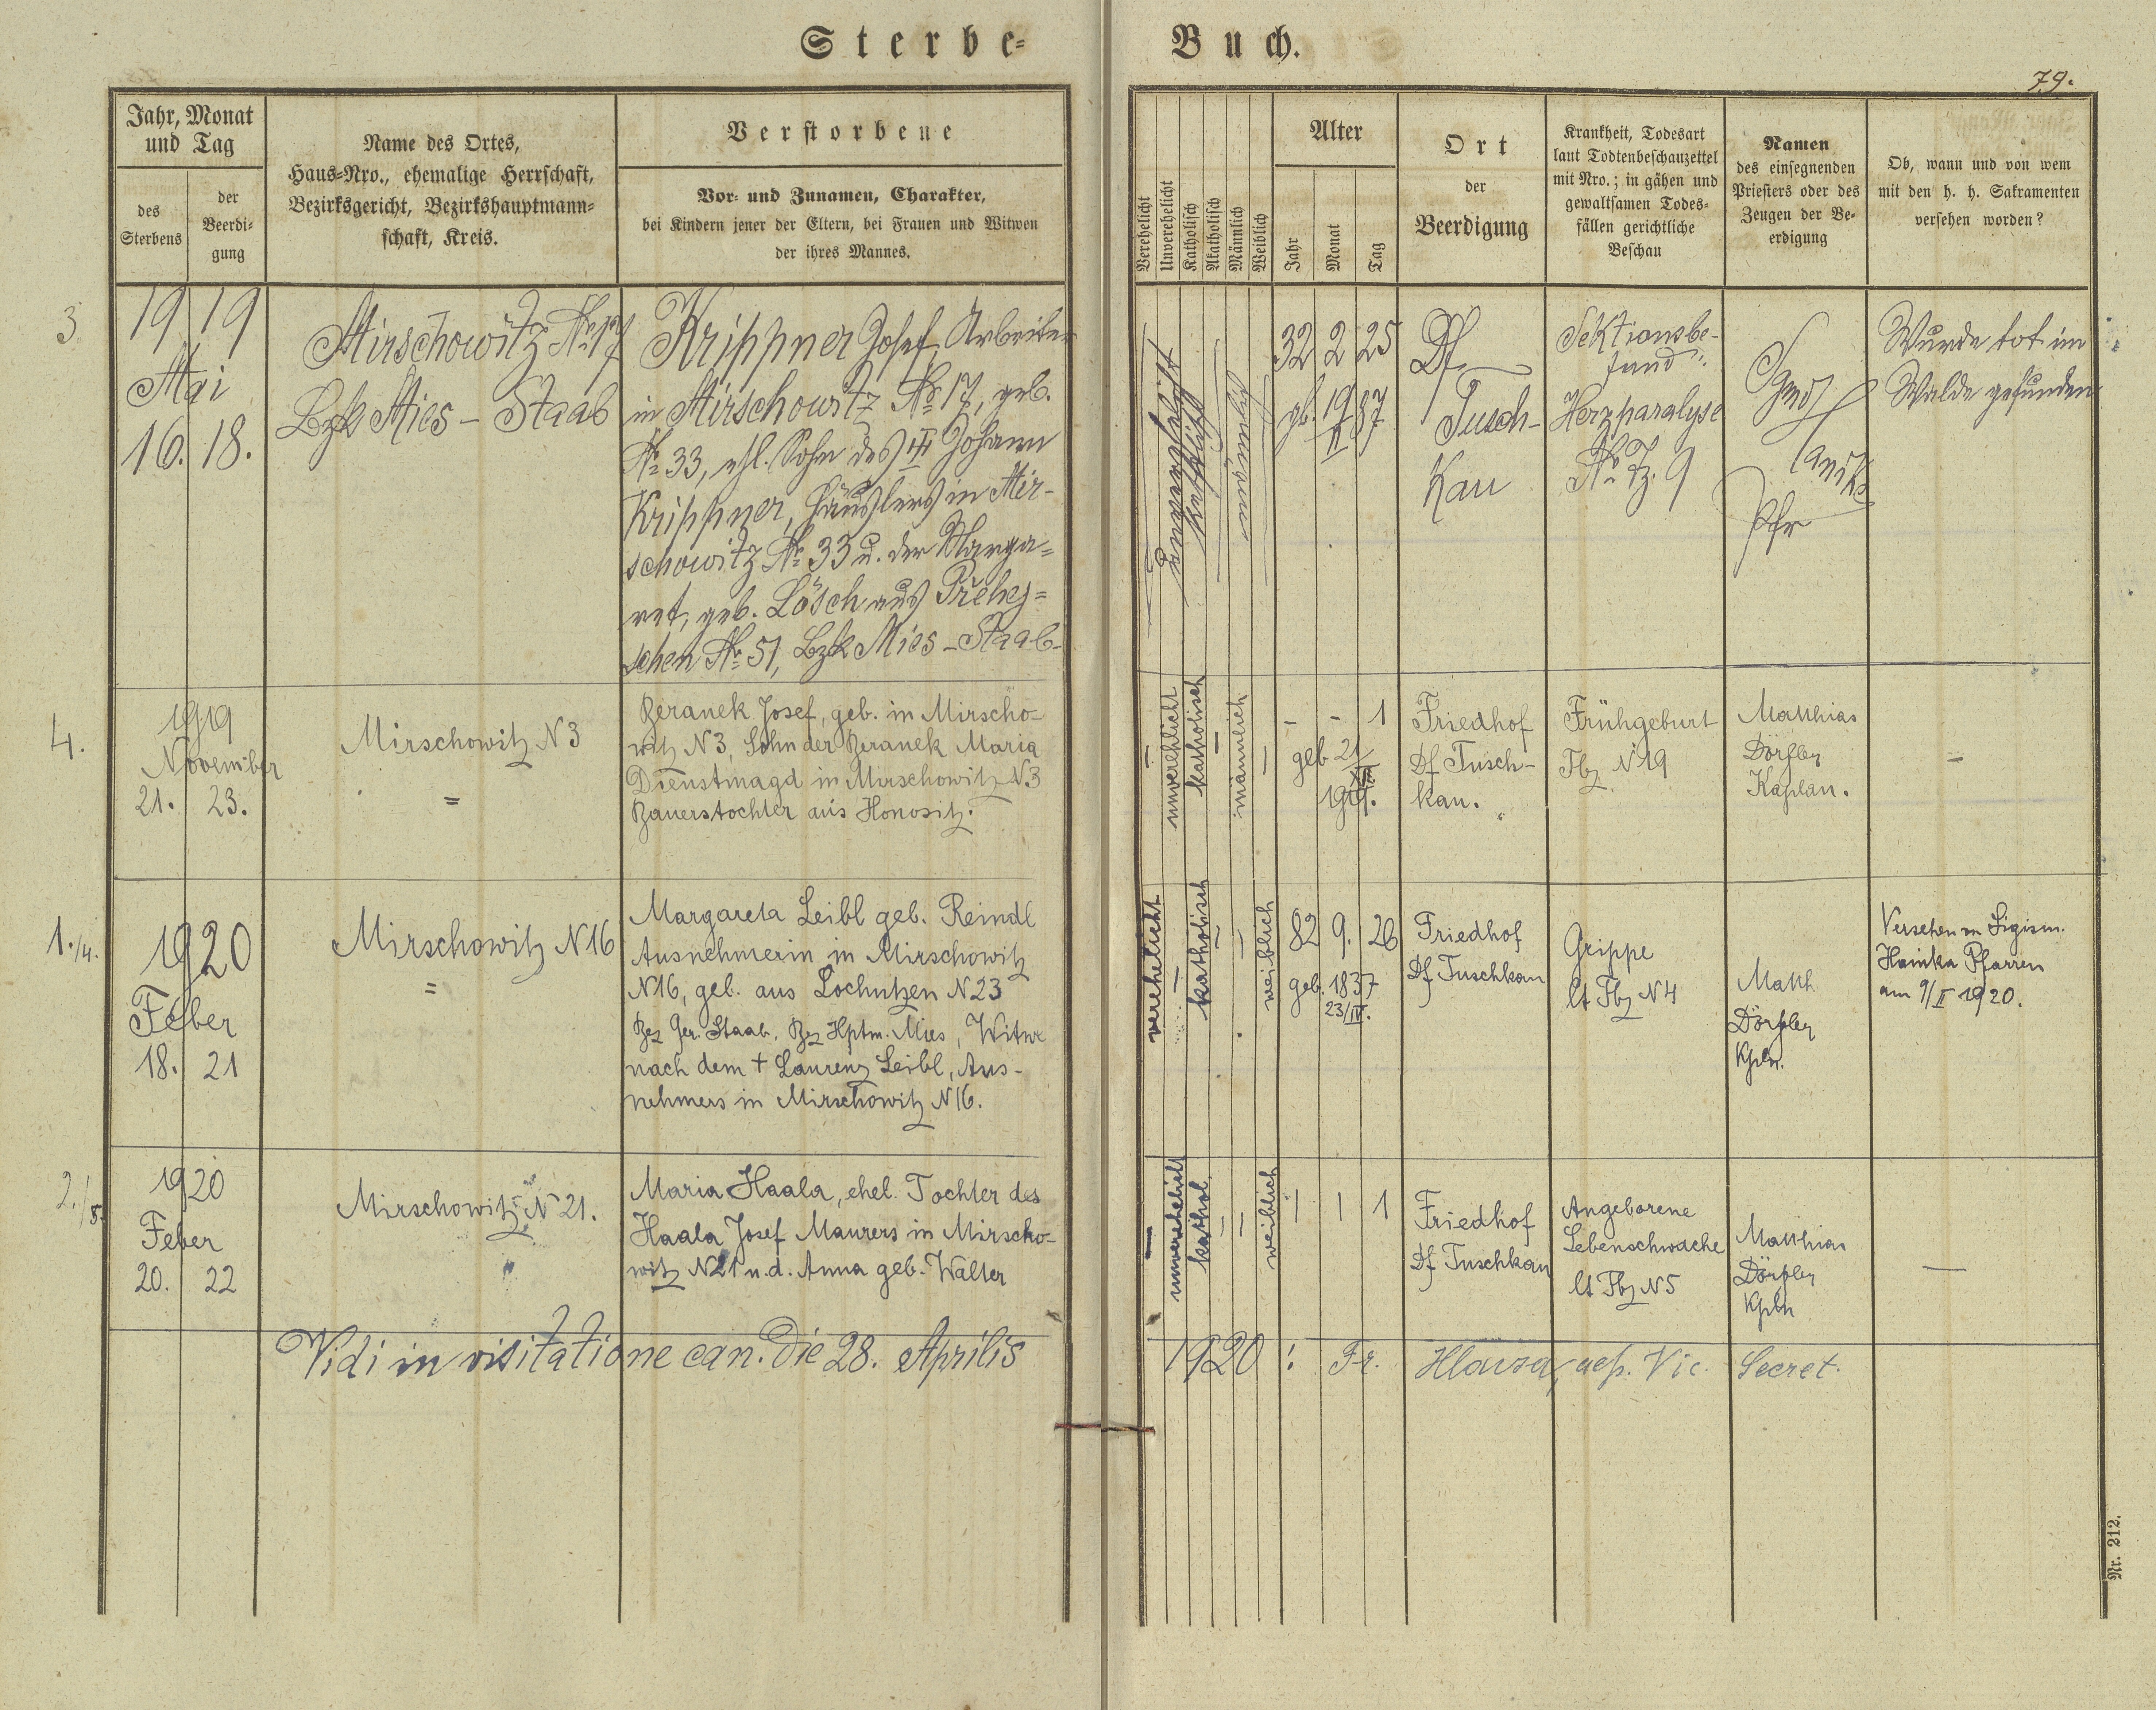 Sterbe-
Buch.
79.
Jahr, Monat
und Tag
des
Sterbens
der
Beerdi-
gung
Name des Ortes,
Haus-Nro., ehemalige Herrschaft,
Bezirksgericht, Bezirkshauptmann-
schaft, Kreis.
Verstorbene
Vor- und Zunamen, Charakter,
bei Kindern jener der Eltern, bei Frauen und Witwen
der ihres Mannes.
Verehelicht
Unverehelicht
Katholisch
Akatholisch
Männlich
Weiblich
Alter
Jahr
Monat
Tag
Ort
der
Beerdigung
Krankheit, Todesart
laut Todtenbeschauzettel
mit Nro.; in gähen und
gewaltsamen Todes-
fällen gerichtliche
Beschau
Namen
des einsegnenden
Priesters oder des
Zeugen der Be-
erdigung
Ob, wann und von wem
mit den h. h. Sakramenten
versehen worden?
3.
19 19
Mai
16. 18.
Mirschowitz No 17
Bzk Mies - Staab
Krippner Josef, Arbeiter
in Mirschowitz No 17, geb.
No 33, ehl. Sohn des Johann
Krippner, Häuslers in Mir-
schowitz No 33 u. der Marga-
ret, geb. Lösch aus Přehej-
schen No 51, Bzk Mies-Staab-
unverehelicht
katholisch
männlich
32 2 25
gb. 19/II 87
Df
Tusch-
kau
Sektionsbe-
fund:
Herzparalyse
No Tz. 9
Pfr
Wurde tot im
Walde gefunden
4.
1919
November
21. 23.
Mirschowitz N 3
=
Beranek Josef, geb. in Mirscho-
witz N 3, Sohn der Beranek Maria
Dienstmagd in Mirschowitz N.3
Bauerstochter aus Honositz.
-
unverehlicht
katholisch
-
männlich
-
- - 1
geb 21/
Friedhof
Df Tusch-
kau.
Frühgeburt
Tbz N 19
Matthias
Dörfler
Kaplan.
-
1./4.
1920
Feber
18. 21
Mirschowitz N 16
=
Margareta Leibl geb. Reindl
Ausnehmerin in Mirschowitz
N 16, geb. aus Lochutzen N 23
Bez Ger. Staab, Bez Hptm. Mies, Witwe
nach dem † Laurenz Leibl, Aus-
nehmers in Mirschowitz N 16.
verehelicht
-
katholisch
-
-
weiblich
82 9. 26
geb. 1837
23/IV.
Friedhof
Df Tuschkau
Grippe
lt Tbz N 4
Matth.
Dörfler
Kpln.
Versehen v. Sigism.
Hainka Pfarren
am 9/II 1920.
2./5.
1920
Feber
20. 22
Mirschowitz N 21.
"
Maria Haala, ehel. Tochter des
Haala Josef Maurers in Mirscho-
witz N 21 u. d. Anna geb. Walter
-
unverehelicht
kathol.
-
-
weiblich
| | 1
Friedhof
Df Tuschkau
Angeborene
Lebenschwäche
lt Tbz N 5
Matthias
Dörfler
Kpln
-
Vidi in visitatione can. die 28. Aprilis
1920: Fr. Hlavsa, aep. Vic. Secret.
Nr. 212.